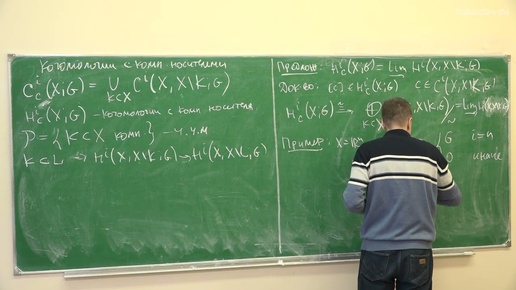 Когомологии с комп. носителями
C_c^i(X;G) = ∪_{K⊂X} C^i(X, X\K, G)
H_c^i(X;G) - когомологии с комп. носителем.
P = { K ⊂ X комп } - ч.у.м
K ⊂ L → H^i(X, X\K; G) → H^i(X, X\L, G)
Предлож: H_c^i(X;G) = lim H^i(X, X\K, G)
Док-во: [c] ∈ H_c^i(X;G) c ∈ C^i(X, X\K, G)
H_c^i(X;G) ≃ ⊕_{K⊂X} X\K, G)/~ = lim
Пример: X = G i=n
0 иначе